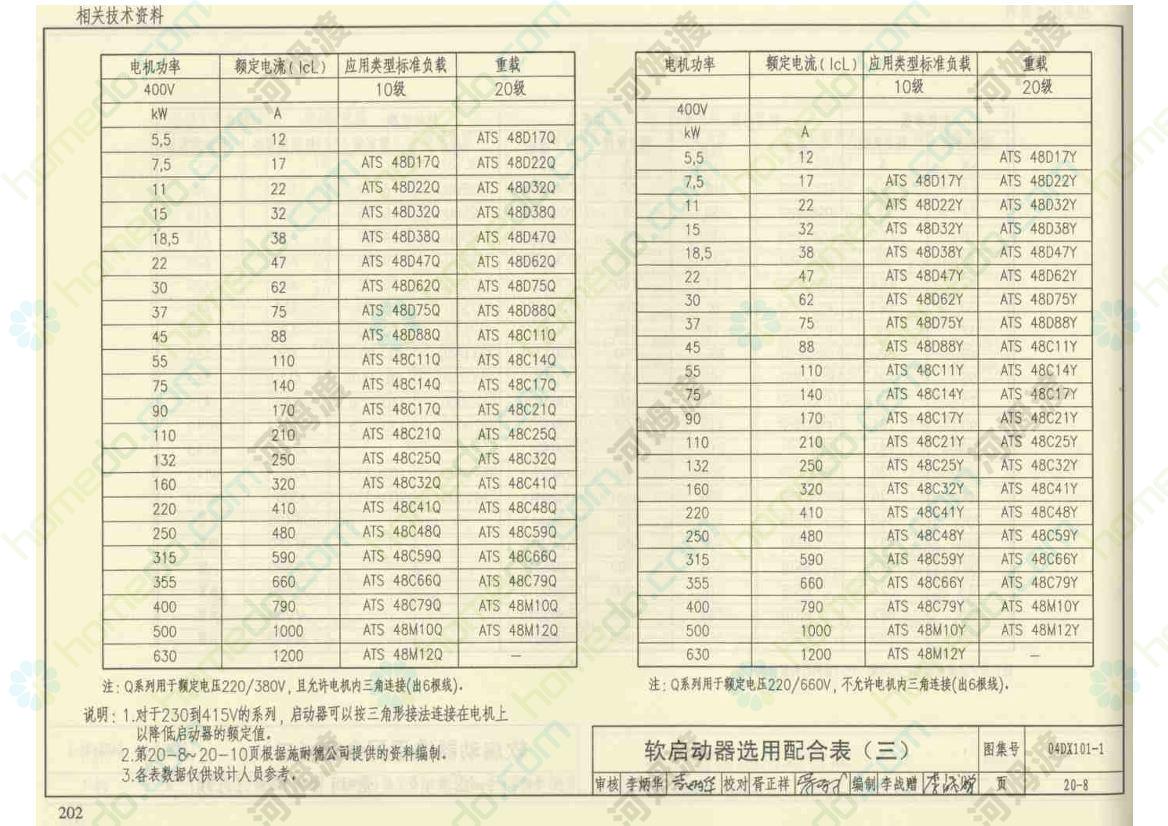 相关技术资料
电机功率 额定电流(IcL) 应用类型标准负载 重载
400V 10级 20级
kW A
5,5 12 ATS 48D17Q
7,5 17 ATS 48D17Q ATS 48D22Q
11 22 ATS 48D22Q ATS 48D32Q
15 32 ATS 48D32Q ATS 48D38Q
18,5 38 ATS 48D38Q ATS 48D47Q
22 47 ATS 48D47Q ATS 48D62Q
30 62 ATS 48D62Q ATS 48D75Q
37 75 ATS 48D75Q ATS 48D88Q
45 88 ATS 48D88Q ATS 48C11Q
55 110 ATS 48C11Q ATS 48C14Q
75 140 ATS 48C14Q ATS 48C17Q
90 170 ATS 48C17Q ATS 48C21Q
110 210 ATS 48C21Q ATS 48C25Q
132 250 ATS 48C25Q ATS 48C32Q
160 320 ATS 48C32Q ATS 48C41Q
220 410 ATS 48C41Q ATS 48C48Q
250 480 ATS 48C48Q ATS 48C59Q
315 590 ATS 48C59Q ATS 48C66Q
355 660 ATS 48C66Q ATS 48C79Q
400 790 ATS 48C79Q ATS 48M10Q
500 1000 ATS 48M10Q ATS 48M12Q
630 1200 ATS 48M12Q —
注: Q系列用于额定电压220/380V, 且允许电机内三角连接(出6根线).
电机功率 额定电流(IcL) 应用类型标准负载 重载
10级 20级
400V
kW A
5,5 12 ATS 48D17Y
7,5 17 ATS 48D17Y ATS 48D22Y
11 22 ATS 48D22Y ATS 48D32Y
15 32 ATS 48D32Y ATS 48D38Y
18,5 38 ATS 48D38Y ATS 48D47Y
22 47 ATS 48D47Y ATS 48D62Y
30 62 ATS 48D62Y ATS 48D75Y
37 75 ATS 48D75Y ATS 48D88Y
45 88 ATS 48D88Y ATS 48C11Y
55 110 ATS 48C11Y ATS 48C14Y
75 140 ATS 48C14Y ATS 48C17Y
90 170 ATS 48C17Y ATS 48C21Y
110 210 ATS 48C21Y ATS 48C25Y
132 250 ATS 48C25Y ATS 48C32Y
160 320 ATS 48C32Y ATS 48C41Y
220 410 ATS 48C41Y ATS 48C48Y
250 480 ATS 48C48Y ATS 48C59Y
315 590 ATS 48C59Y ATS 48C66Y
355 660 ATS 48C66Y ATS 48C79Y
400 790 ATS 48C79Y ATS 48M10Y
500 1000 ATS 48M10Y ATS 48M12Y
630 1200 ATS 48M12Y —
注: Q系列用于额定电压220/660V, 不允许电机内三角连接(出6根线).
说明: 1.对于230到415V的系列, 启动器可以按三角形接法连接在电机上
以降低启动器的额定值.
2.第20-8~20-10页根据施耐德公司提供的资料编制.
3.各表数据仅供设计人员参考.
软启动器选用配合表（三） 图集号 04DX101-1
审核 李炳华 校对 胥正祥 编制 李战赠 页 20-8
202
河姆渡
homedo.com